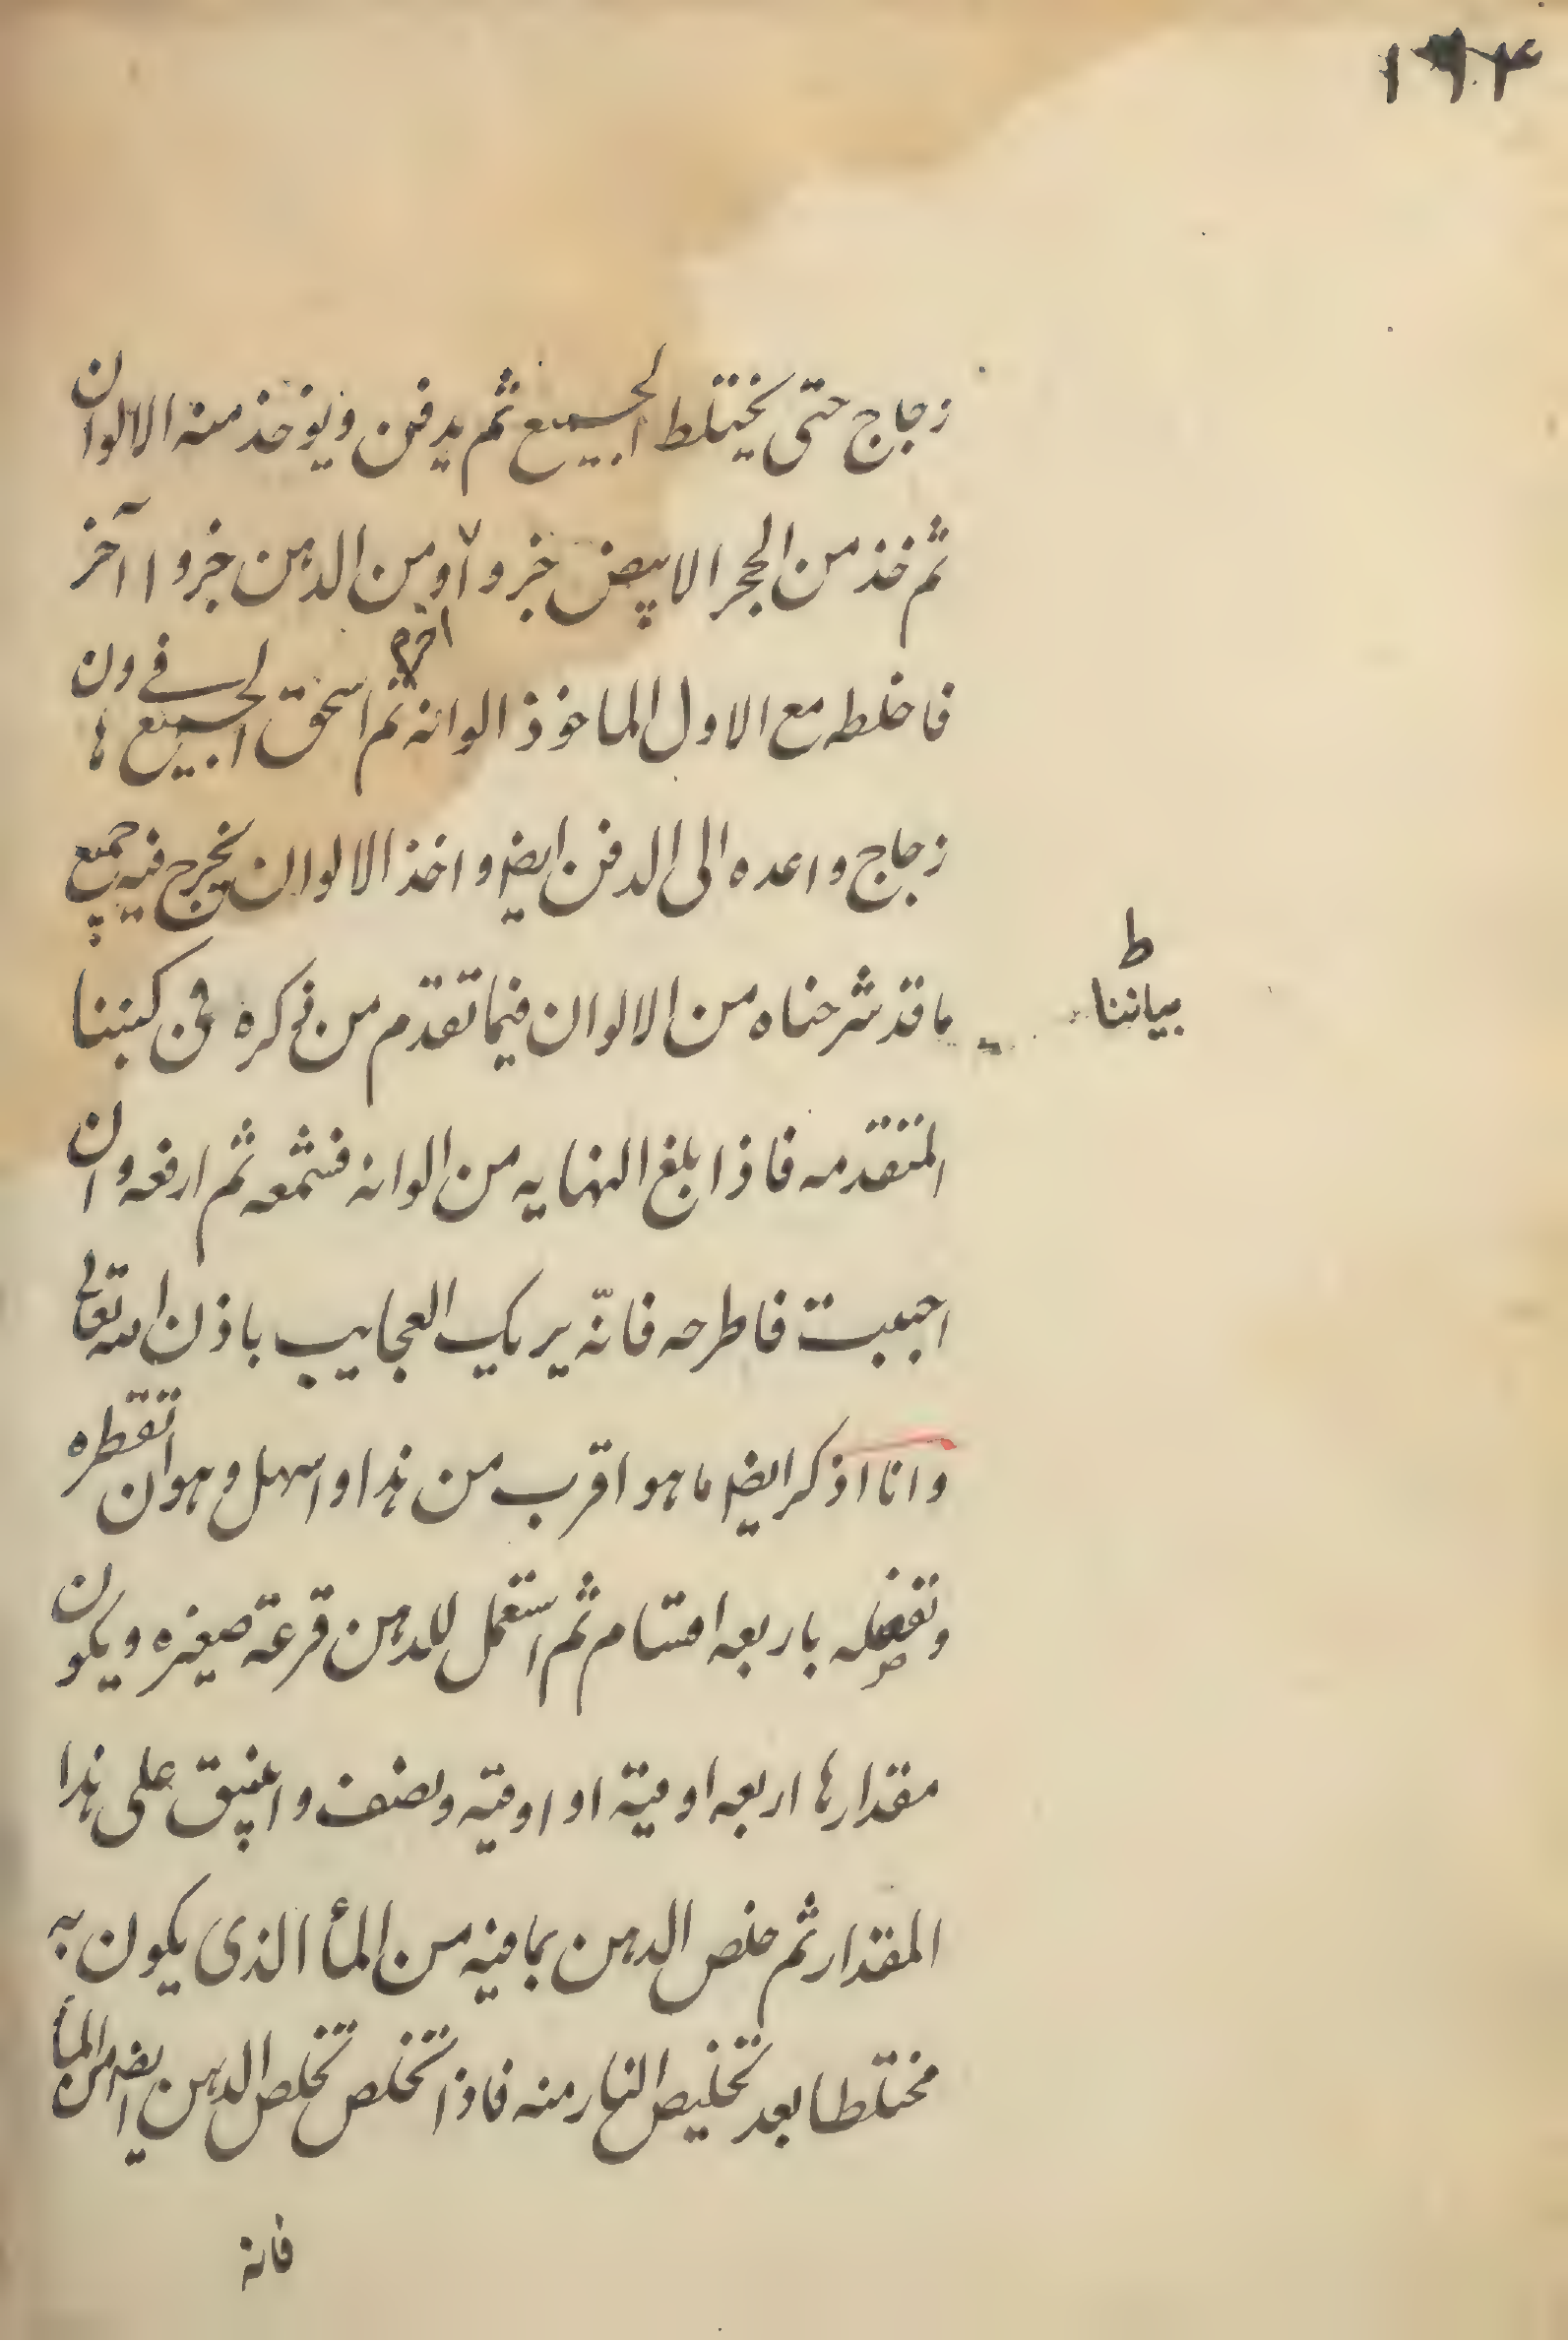 ١٩٤
زجاج حتى يختلط الجميع ثم يدفن ويؤخذ منه الالوان
ثم خذ من الحجر الابيض جزوا ومن الدهن جزوا اخر
فاخلطه مع الاول الماخوذ الوانه ثم اسحق الجميع في هاون
زجاج واعده الى الدفن ايضا واخذ الالوان يخرج فيه جميع
ما قد شرحناه من الالوان فيما تقدم من ذكره في كتبنا
ط
بياننا
المتقدمه فاذا بلغ النهايه من الوانه فشمعه ثم ارفعه وان
احببت فاطرحه فانّه يريك العجايب باذن الله تعالى
وانا اذكر ايضا ما هو اقرب من هذا واسهل وهو ان تقطره
وتفصله باربعه اقسام ثم استعمل للدهن قرعة صغيره ويكون
مقدارها اربعه اوقية او اوقيه ونصف وانبيق على هذا
المقدار ثم خلص الدهن بما فيه من المأ الذى يكون به
مختلطا بعد تخليص النار منه فاذا تخلص تخلص الدهن ايضا من المأ
فانه